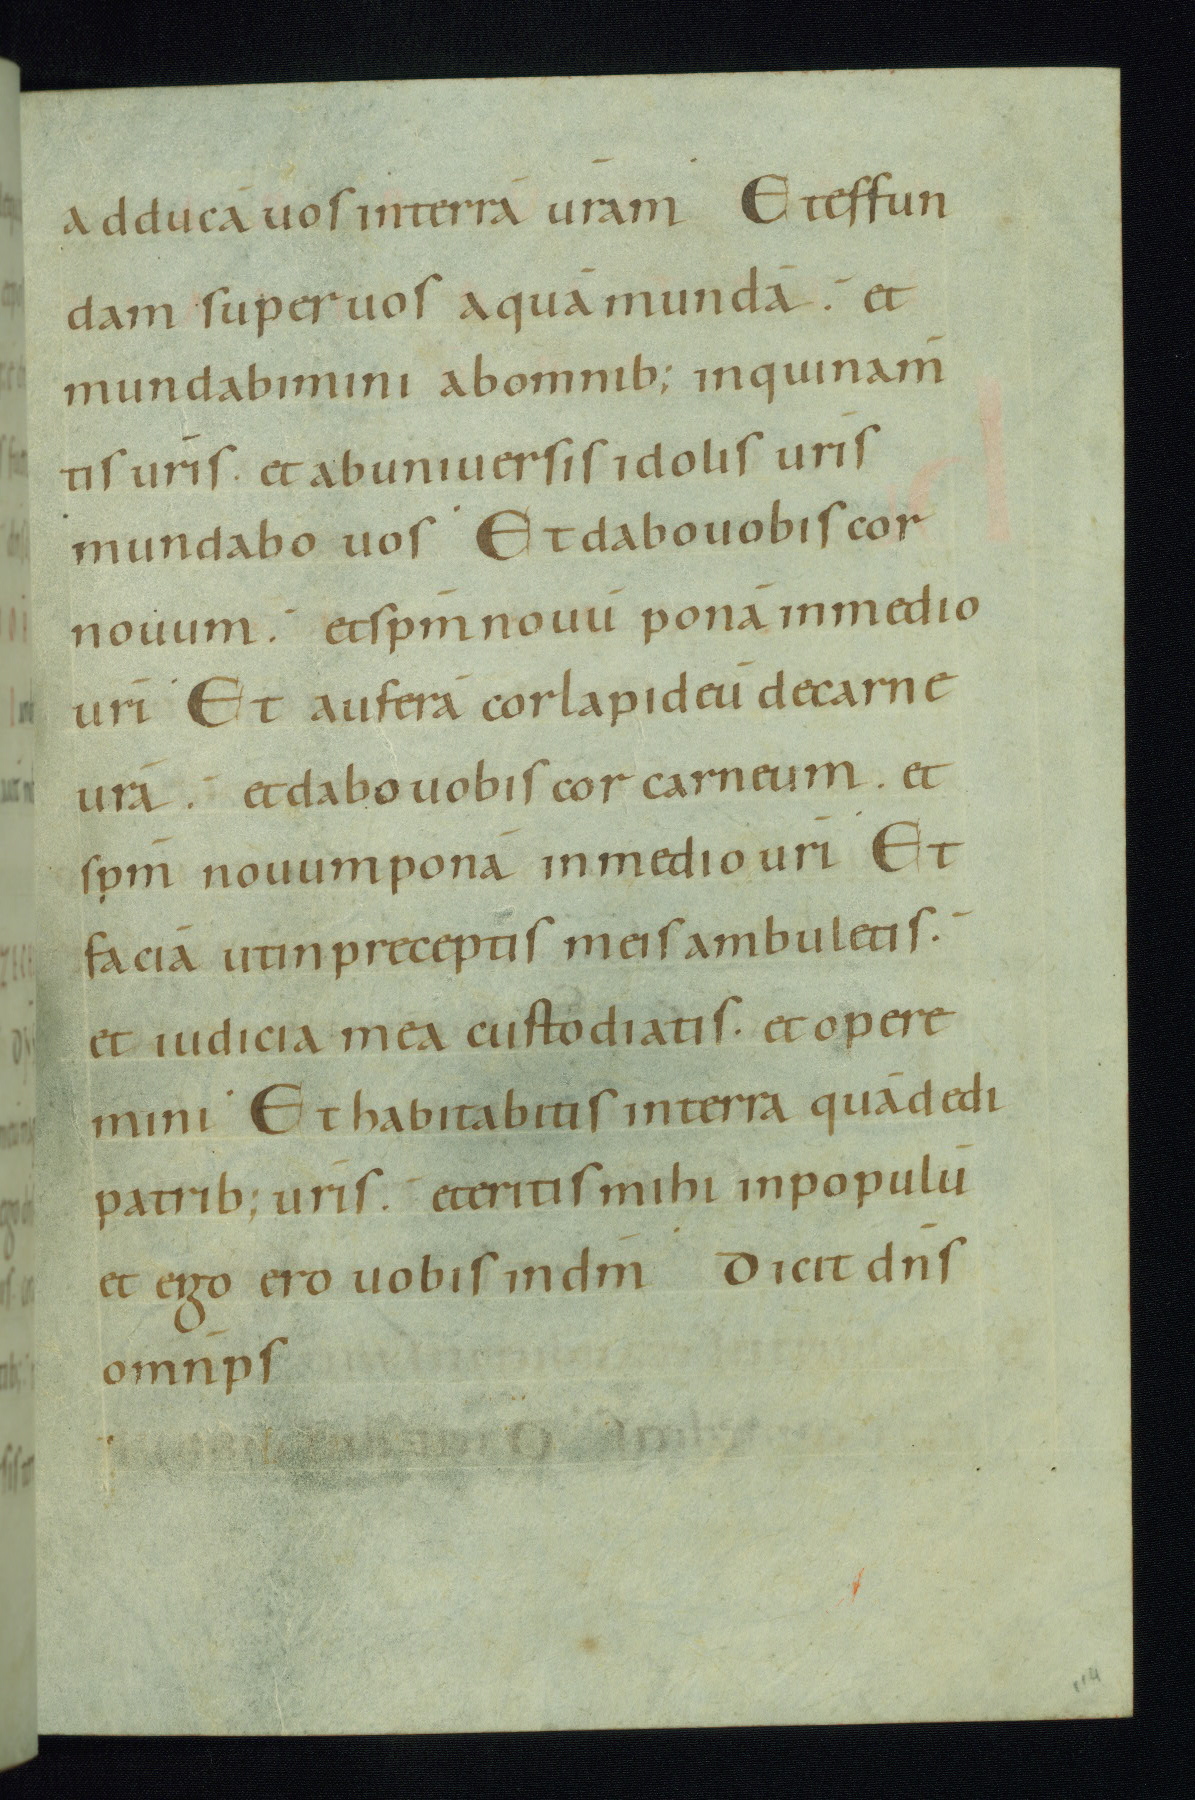 adducā uos interrā urām Et effun
dam super uos aquā mundā. et
mundabimini abomnib; inquinam̄
tis urīs. et abuniuersis idolis urīs
mundabo uos Et dabo uobis cor
nouum. et spm̄ nouū ponā inmedio
urī Et auferā cor lapideū decarne
urā. et dabo uobis cor carneum. et
spm̄ nouum ponā inmedio urī Et
faciā ut inpreceptis meis ambuletis.
et iudicia mea custodiatis. et opere
mini Et habitabitis interra quā dedi
patrib; urīs. et eritis mihi inpopulū
et ego ero uobis indm̄ Dicit dn̄s
omnīps
114